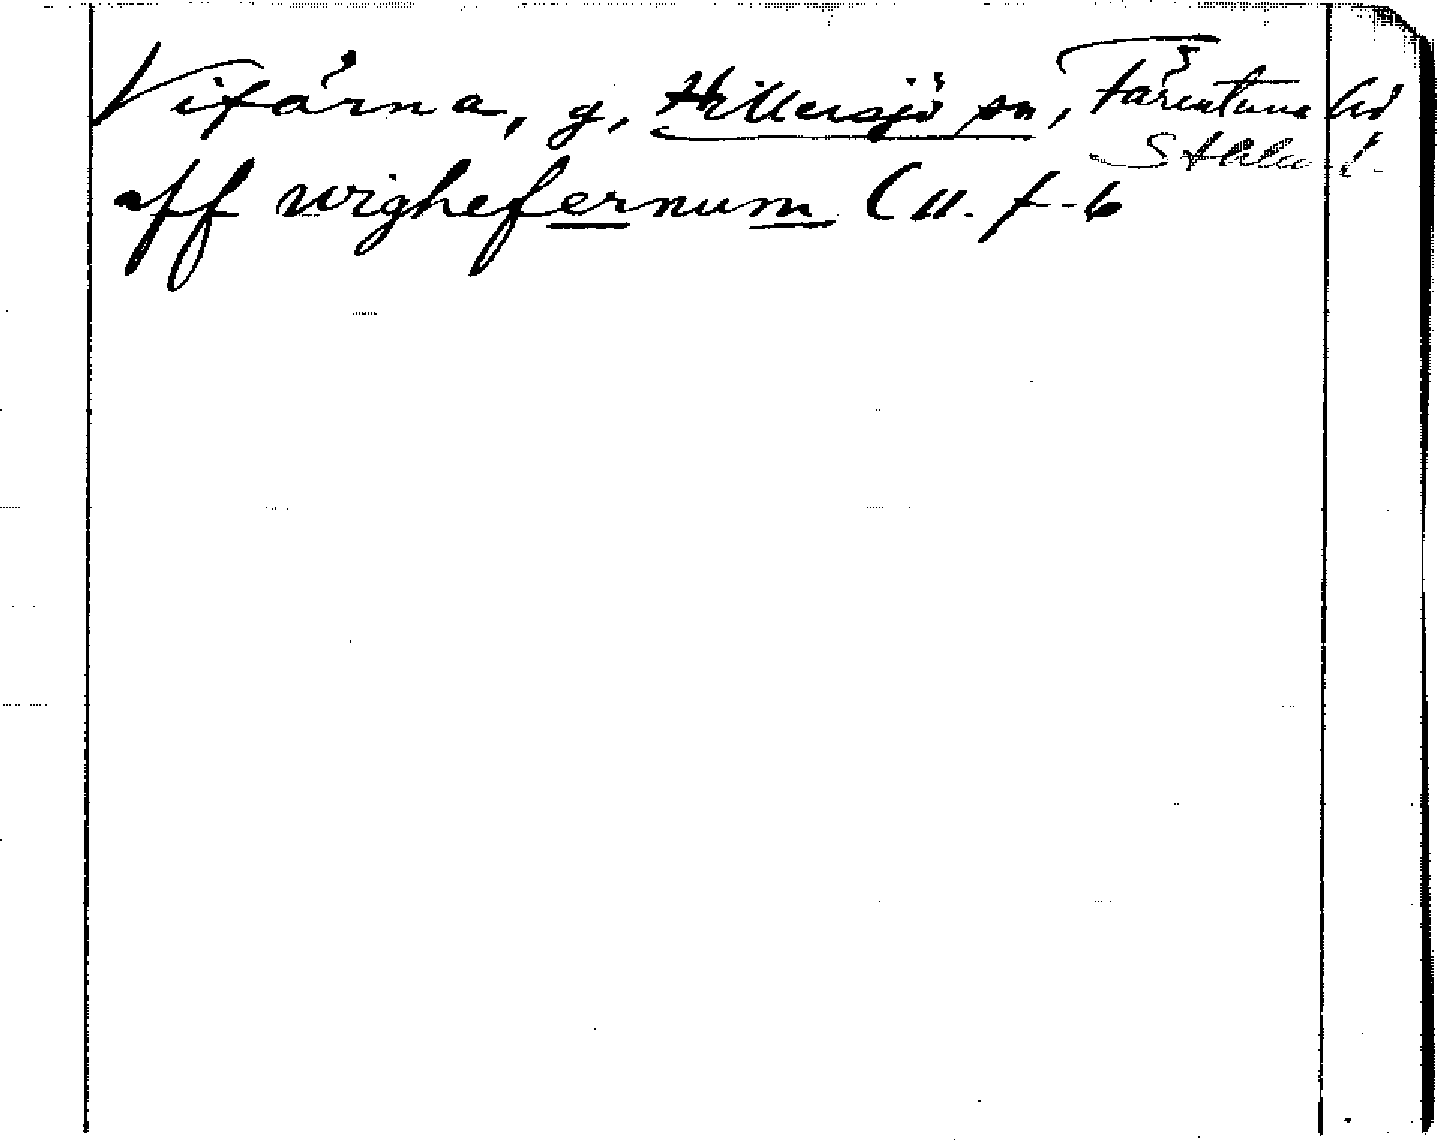 Vifärna, g, Hillersjö sn, Färentuna hd
Sthlms l.
aff wighefernum C 11. f. 6